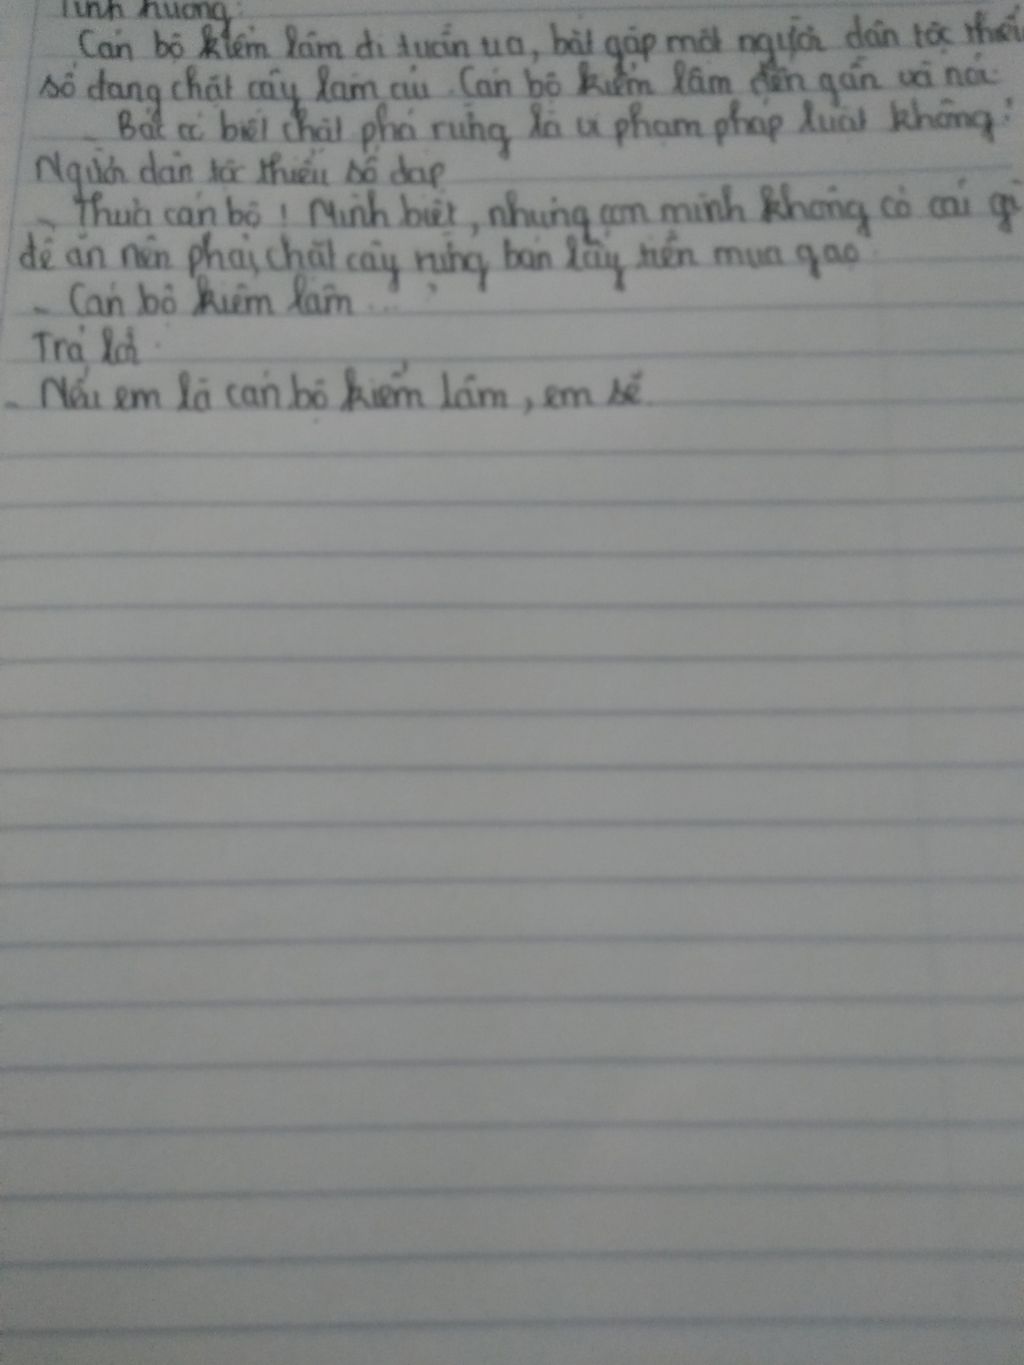 Tình huống:
Cán bộ kiểm lâm đi tuần tra, bắt gặp một người dân tộc thiểu
số đang chặt cây làm củi. Cán bộ kiểm lâm đến gần và nói:
- Bác có biết chặt phá rừng là vi phạm pháp luật không?
Người dân tộc thiểu số đáp
- Thưa cán bộ! Mình biết, nhưng con mình không có cái gì
để ăn nên phải chặt cây rừng bán lấy tiền mua gạo
- Cán bộ kiểm lâm ...?
Trả lời:
- Nếu em là cán bộ kiểm lâm, em sẽ